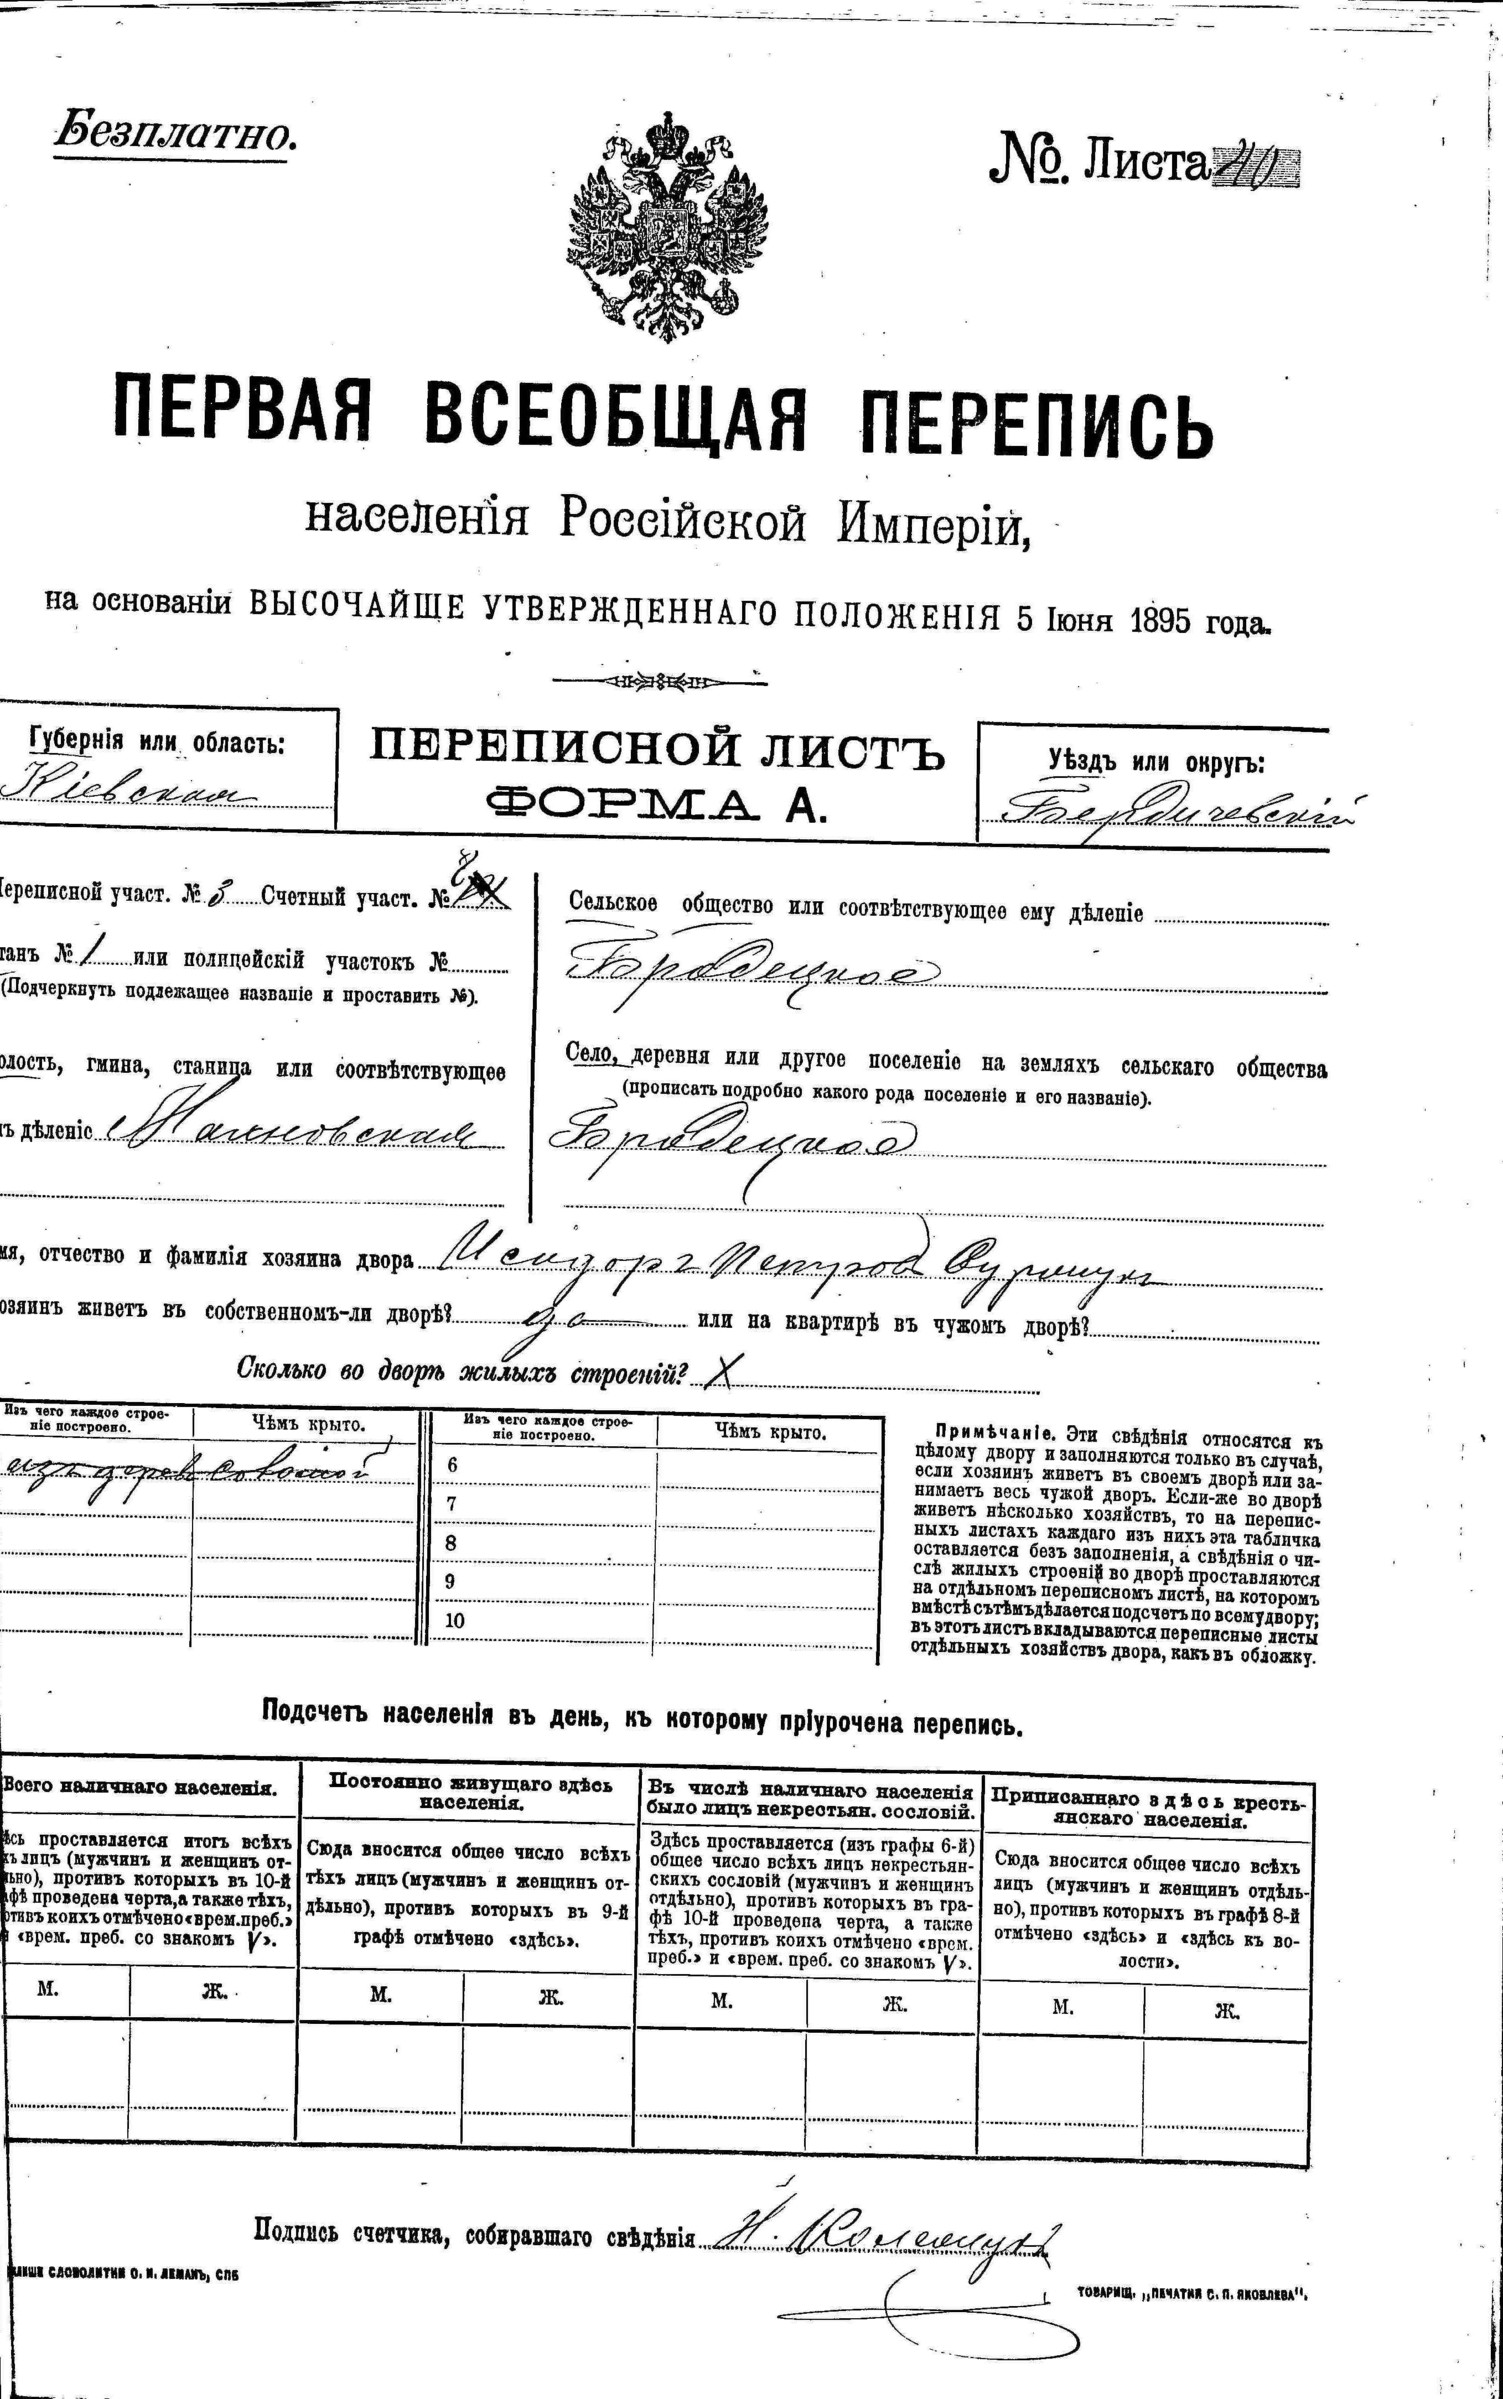 Безплатно.
№. Листа 40
ПЕРВАЯ ВСЕОБЩАЯ ПЕРЕПИСЬ
населенія Россійской Имперіи,
на основаніи ВЫСОЧАЙШЕ УТВЕРЖДЕННАГО ПОЛОЖЕНІЯ 5 Іюня 1895 года.
Губернія или область:
Кіевская
ПЕРЕПИСНОЙ ЛИСТЪ
ФОРМА А.
Уѣздъ или округъ:
Бердичевскій
Переписной участ. № 3 Счетный участ. №
танъ № 1 или полицейскій участокъ №
(Подчеркнуть подлежащее названіе и проставить №).
олость, гмина, станица или соотвѣтствующее
ъ дѣленіе Махновская
Сельское общество или соотвѣтствующее ему дѣленіе
Бродецкое
Село, деревня или другое поселеніе на земляхъ сельскаго общества
(прописать подробно какого рода поселеніе и его названіе).
Бродецкое
мя, отчество и фамилія хозяина двора Исидоръ Петровъ
озяинъ живетъ въ собственномъ-ли дворѣ? да или на квартирѣ въ чужомъ дворѣ?
Сколько во дворѣ жилыхъ строеній? X
Изъ чего каждое строе-
ніе построено.
Чѣмъ крыто.
Изъ чего каждое строе-
ніе построено.
Чѣмъ крыто.
изъ дерев соломой
6
7
8
9
10
Примѣчаніе. Эти свѣдѣнія относятся къ
цѣлому двору и заполняются только въ случаѣ,
если хозяинъ живетъ въ своемъ дворѣ или за-
нимаетъ весь чужой дворъ. Если-же во дворѣ
живетъ нѣсколько хозяйствъ, то на перепис-
ныхъ листахъ каждаго изъ нихъ эта табличка
оставляется безъ заполненія, а свѣдѣнія о чи-
слѣ жилыхъ строеній во дворѣ проставляются
на отдѣльномъ переписномъ листѣ, на которомъ
вмѣстѣ съ тѣмъ дѣлается подсчетъ по всему двору;
въ этотъ листъ вкладываются переписные листы
отдѣльныхъ хозяйствъ двора, какъ въ обложку.
Подсчетъ населенія въ день, къ которому пріурочена перепись.
Всего наличнаго населенія.
ѣсь проставляется итогъ всѣхъ
хъ лицъ (мужчинъ и женщинъ от-
ьно), противъ которыхъ въ 10-й
афѣ проведена черта, а также тѣхъ,
отивъ коихъ отмѣчено «врем. преб.»
и «врем. преб. со знакомъ V».
Постоянно живущаго здѣсь
населенія.
Сюда вносится общее число всѣхъ
тѣхъ лицъ (мужчинъ и женщинъ от-
дѣльно), противъ которыхъ въ 9-й
графѣ отмѣчено «здѣсь».
Въ числѣ наличнаго населенія
было лицъ некрестьян. сословій.
Здѣсь проставляется (изъ графы 6-й)
общее число всѣхъ лицъ некрестьян-
скихъ сословій (мужчинъ и женщинъ
отдѣльно), противъ которыхъ въ гра-
фѣ 10-й проведена черта, а также
тѣхъ, противъ коихъ отмѣчено «врем.
преб.» и «врем. преб. со знакомъ V».
Приписаннаго здѣсь кресть-
янскаго населенія.
Сюда вносится общее число всѣхъ
лицъ (мужчинъ и женщинъ отдѣль-
но), противъ которыхъ въ графѣ 8-й
отмѣчено «здѣсь» и «здѣсь къ во-
лости».
М. Ж. М. Ж. М. Ж. М. Ж.
Подпись счетчика, собиравшаго свѣдѣнія Н.
КЛИШЕ СЛОВОЛИТНИ О. И. ЛЕМАНЪ, СПБ
ТОВАРИЩ. „ПЕЧАТНЯ С. П. ЯКОВЛЕВА".